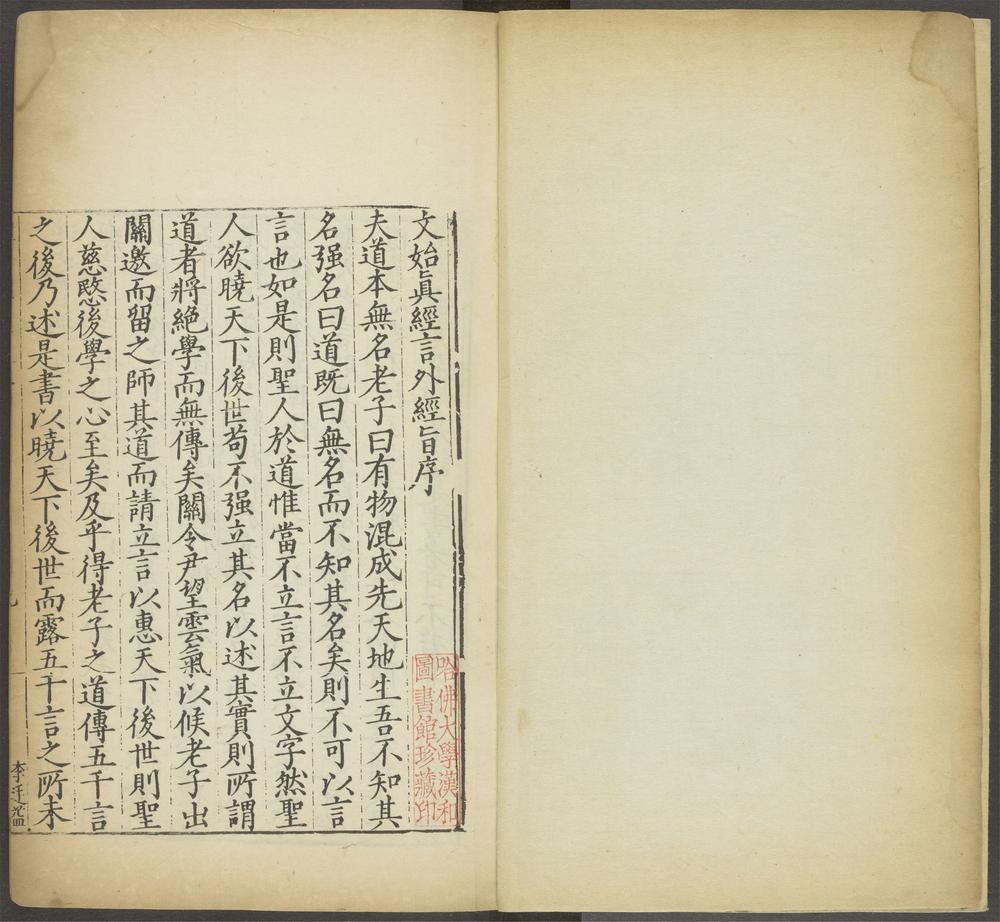 文始眞經言外經旨序
夫道本無名老子曰有物混成先天地生吾不知其
名强名曰道既曰無名而不知其名矣則不可以言
言也如是則聖人於道惟當不立言不立文字然聖
人欲曉天下後世苟不强立其名以述其實則所謂
道者將絶學而無傳矣關令尹望雲氣以候老子出
關邀而留之師其道而請立言以惠天下後世則聖
人慈愍後學之心至矣及乎得老子之道傳五千言
之後乃述是書以曉天下後世而露五千言之所未
哈佛大學漢和
圖書館珍藏印
李